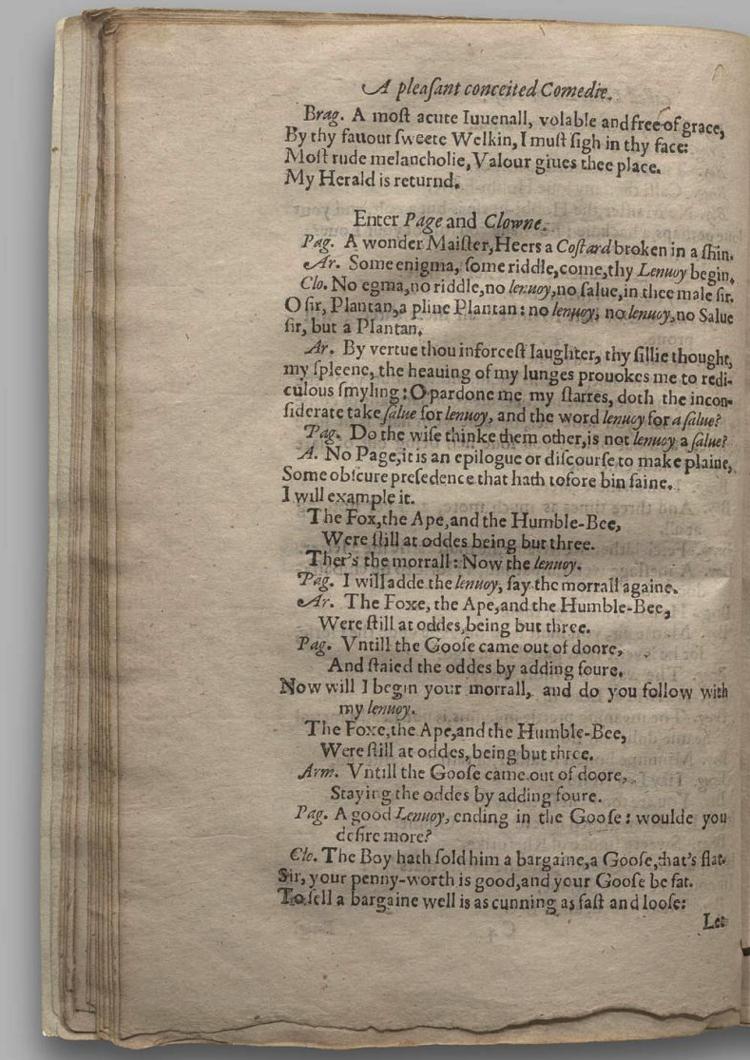 A pleaſant conceited Comedie.
Brag. A moſt acute Iuuenall, volable and free of grace,
By thy fauour ſweete Welkin, I muſt ſigh in thy face:
Moſt rude melancholie, Valour giues thee place.
My Herald is returnd.
Enter Page and Clowne.
Pag. A wonder Maiſter, Heers a Coſtard broken in a ſhin.
Ar. Some enigma, ſome riddle, come, thy Lenuoy begin.
Clo. No egma, no riddle, no lenuoy, no ſalue, in thee male ſir.
O ſir, Plantan, a pline Plantan: no lenuoy, no lenuoy, no Salue
ſir, but a Plantan.
Ar. By vertue thou inforceſt laughter, thy ſillie thought,
my ſpleene, the heauing of my lunges prouokes me to redi-
culous ſmyling: O pardone me my ſtarres, doth the incon-
ſiderate take ſalue for lenuoy, and the word lenuoy for a ſalue?
Pag. Do the wiſe thinke them other, is not lenuoy a ſalue?
A. No Page, it is an epilogue or diſcourſe to make plaine,
Some obſcure preſedence that hath tofore bin ſaine.
I will example it.
The Fox, the Ape, and the Humble-Bee,
Were ſtill at oddes being but three.
Ther's the morrall: Now the lenuoy.
Pag. I will adde the lenuoy, ſay the morrall againe.
Ar. The Foxe, the Ape, and the Humble-Bee,
Were ſtill at oddes, being but three.
Pag. Vntill the Gooſe came out of doore,
And ſtaied the oddes by adding foure.
Now will I begin your morrall, and do you follow with
my lenuoy.
The Foxe, the Ape, and the Humble-Bee,
Were ſtill at oddes, being but three.
Arm. Vntill the Gooſe came out of doore,
Staying the oddes by adding foure.
Pag. A good Lenuoy, ending in the Gooſe: woulde you
deſire more?
Clo. The Boy hath ſold him a bargaine, a Gooſe, that's flat.
Sir, your penny-worth is good, and your Gooſe be fat.
To ſell a bargaine well is as cunning as faſt and looſe:
Let